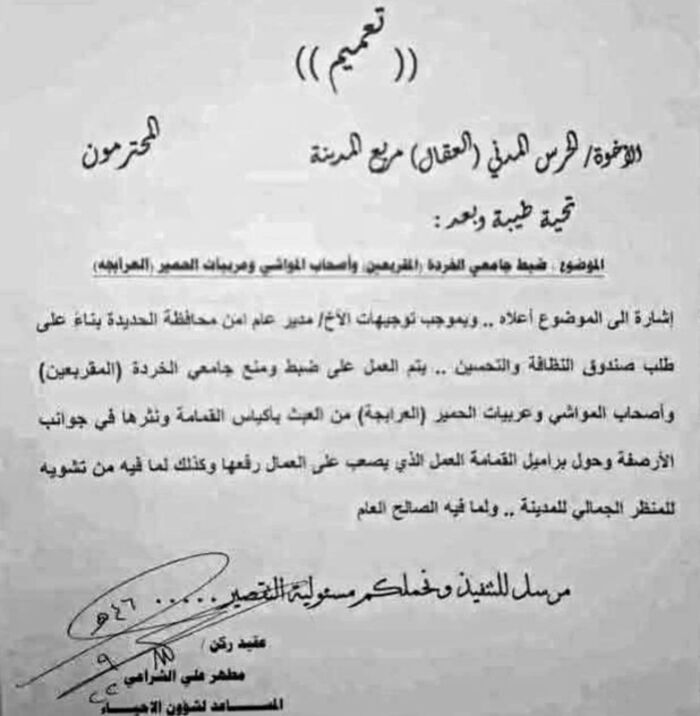 (( تعميم ))
الأخوة/ الحرس المدني (العقال) مربع المدينة المحترمون
تحية طيبة وبعد :
الموضوع : ضبط جامعي الخردة (المقربعين) وأصحاب المواشي وعربيات الحمير (العرابجه)
إشارة الى الموضوع أعلاه .. وبموجب توجيهات الأخ/ مدير عام امن محافظة الحديدة بناءً على
طلب صندوق النظافة والتحسين .. يتم العمل على ضبط ومنع جامعي الخردة (المقربعين)
وأصحاب المواشي وعربيات الحمير (العرابجة) من العبث بأكياس القمامة ونثرها في جوانب
الأرصفة وحول براميل القمامة العمل الذي يصعب على العمال رفعها وكذلك لما فيه من تشويه
للمنظر الجمالي للمدينة .. ولما فيه الصالح العام
مرسل للتنفيذ ونحملكم مسئولية التقصير .....
عقيد ركن /
مطهر علي الشراعي
المساعد لشؤون الاحياء